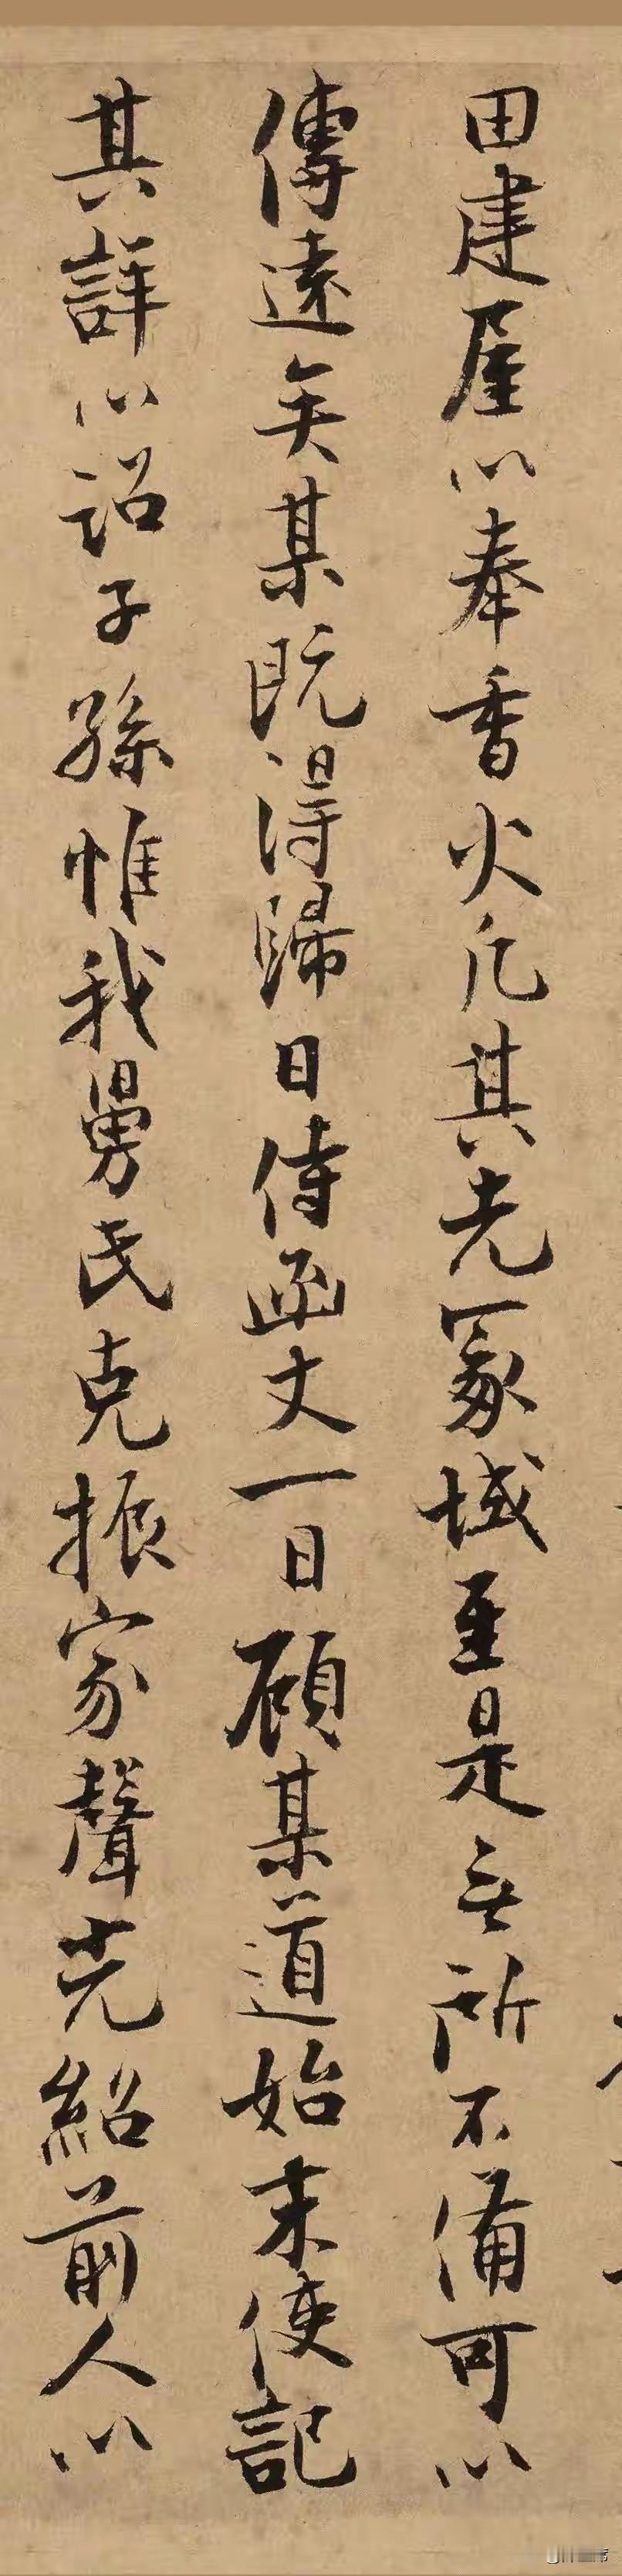 田建屋以奉香火凡其先冢域至是无所不備可以
傳遠矣某既得歸日侍函丈一日顧某道始末使記
其詳以詔子孫惟我舅氏克振家聲光紹前人以